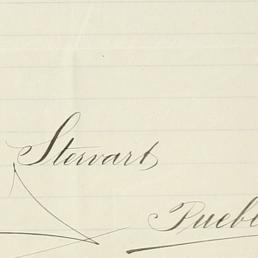 Stewart
Puebl